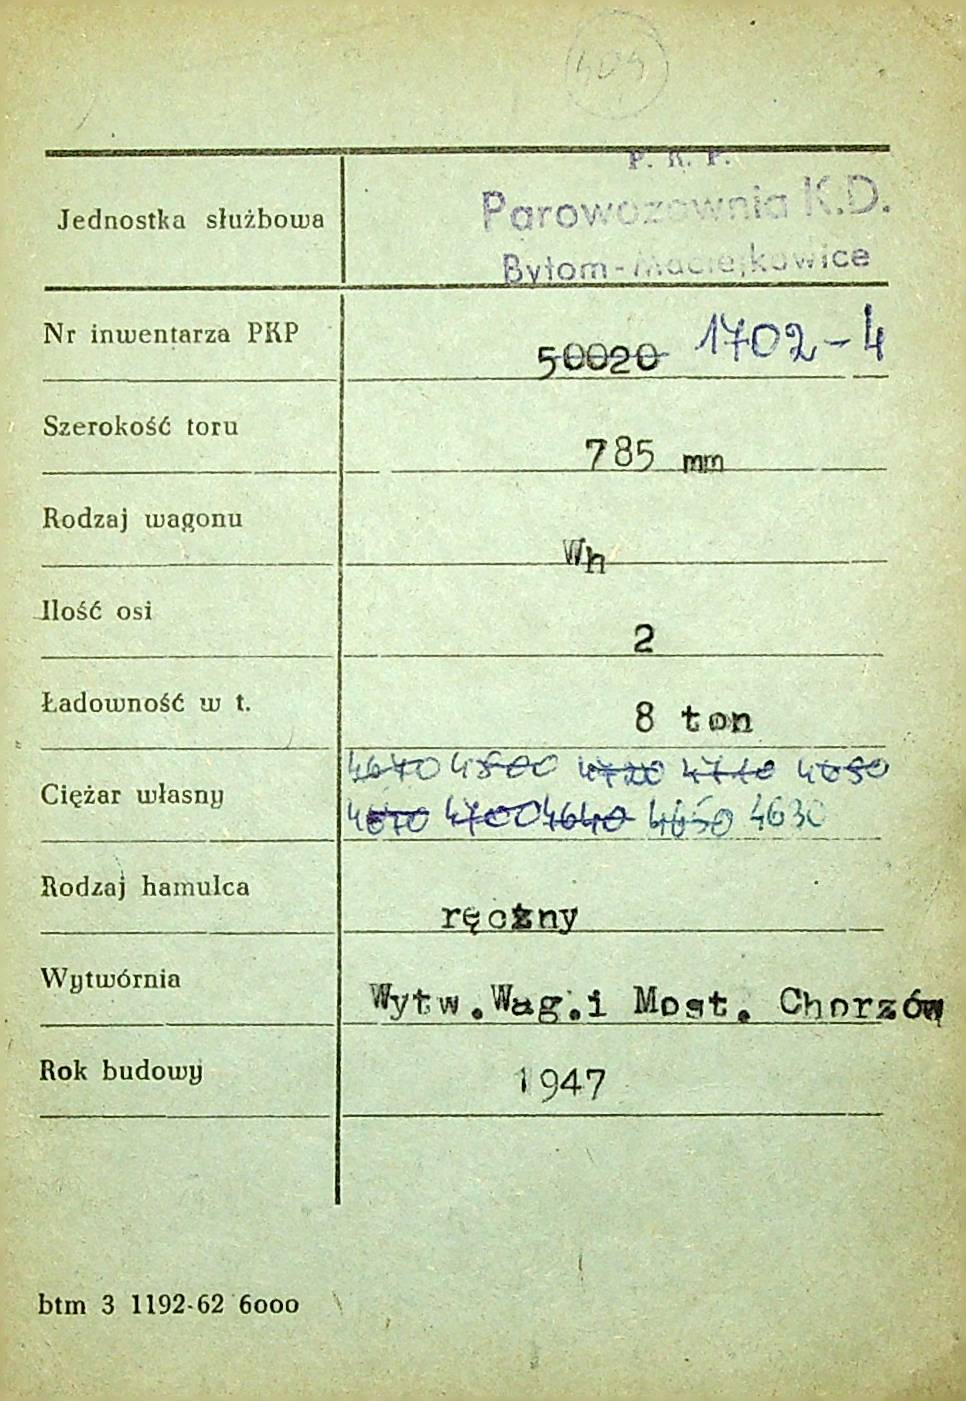 404
P. K. P.
Jednostka służbowa Parowozownia K.D.
Bytom-Maciejkowice
Nr inwentarza PKP 50020 1702-4
Szerokość toru 785 mm
Rodzaj wagonu Wh
Ilość osi 2
Ładowność w t. 8 ton
4670 4800 4720 4710 4650
Ciężar własny
4670 4700 4640 4650 4630
Rodzaj hamulca ręczny
Wytwórnia Wytw.Wag.i Most. Chorzów
Rok budowy 1947
btm 3 1192-62 6000